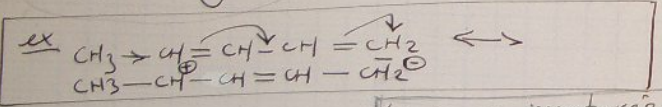 ex CH3 → CH = CH - CH = CH2 ⟷
CH3 — CH⊕ — CH = CH — CH2⊖